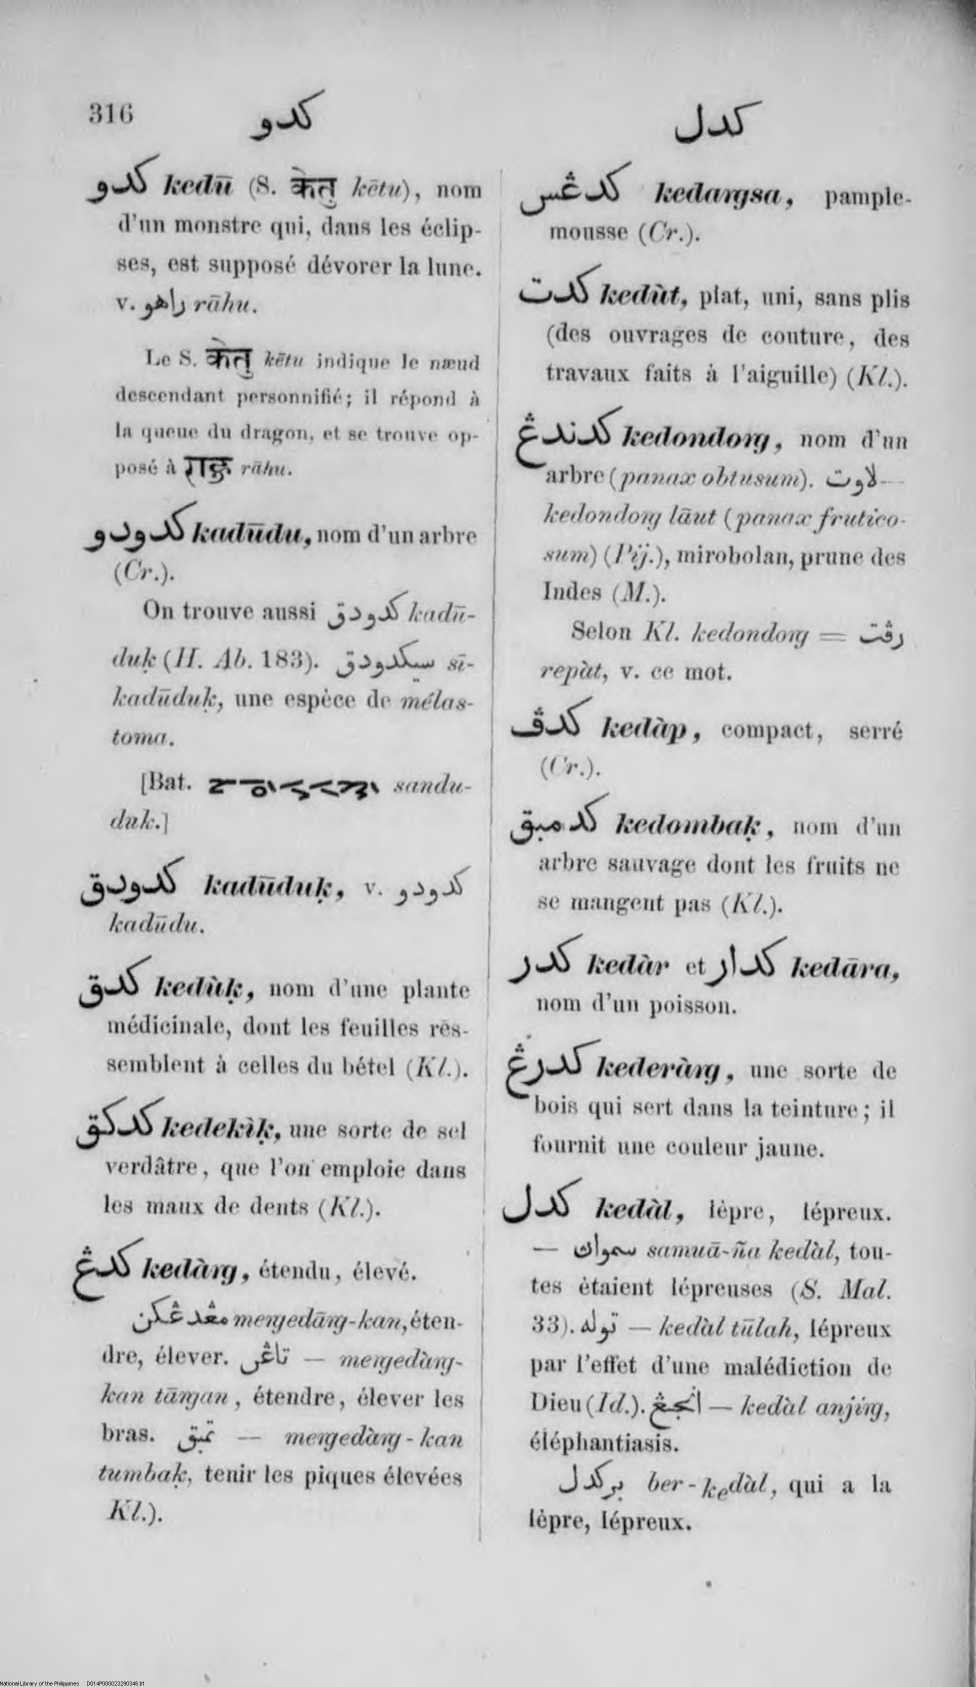 316
كدو
كدل
كدو kedū (S. केतु kētu), nom
d'un monstre qui, dans les éclip-
ses, est supposé dévorer la lune.
v. راهو rāhu.
Le S. केतु kētu indique le nœud
descendant personnifié; il répond à
la queue du dragon, et se trouve op-
posé à राहु rāhu.
كدودو kadūdu, nom d'un arbre
(Cr.).
On trouve aussi كدودق kadū-
duḳ (H. Ab. 183). سيكدودق sī-
kadūduḳ, une espèce de mélas-
toma.
[Bat. sandu-
duk.]
كدودق kadūduḳ, v. كدودو
kadūdu.
كدق kedùḳ, nom d'une plante
médicinale, dont les feuilles res-
semblent à celles du bétel (Kl.).
كدكق kedekìḳ, une sorte de sel
verdâtre, que l'on emploie dans
les maux de dents (Kl.).
كدڠ kedàrg, étendu, élevé.
مڠدڠكن mergedārg-kan, éten-
dre, élever. تاڠن — mergedàrg-
kan tārgan, étendre, élever les
bras. تمبق — mergedàrg-kan
tumbaḳ, tenir les piques élevées
Kl.).
كدڠس kedargsa, pample-
mousse (Cr.).
كدت kedùt, plat, uni, sans plis
(des ouvrages de couture, des
travaux faits à l'aiguille) (Kl.).
كدندڠ kedondorg, nom d'un
arbre (panax obtusum). لاوت —
kedondorg lāut (panax frutico-
sum) (Pij.), mirobolan, prune des
Indes (M.).
Selon Kl. kedondorg = رڤت
repàt, v. ce mot.
كدڤ kedàp, compact, serré
(Cr.).
كدمبق kedombaḳ, nom d'un
arbre sauvage dont les fruits ne
se mangent pas (Kl.).
كدر kedàr et كدار kedāra,
nom d'un poisson.
كدرڠ kederàrg, une sorte de
bois qui sert dans la teinture; il
fournit une couleur jaune.
كدل kedàl, lèpre, lépreux.
— سموان samuā-ña kedàl, tou-
tes étaient lépreuses (S. Mal.
33). توله — kedàl tūlah, lépreux
par l'effet d'une malédiction de
Dieu (Id.). انجڠ — kedàl anjirg,
éléphantiasis.
بركدل ber-kedàl, qui a la
lèpre, lépreux.
National Library of the Philippines